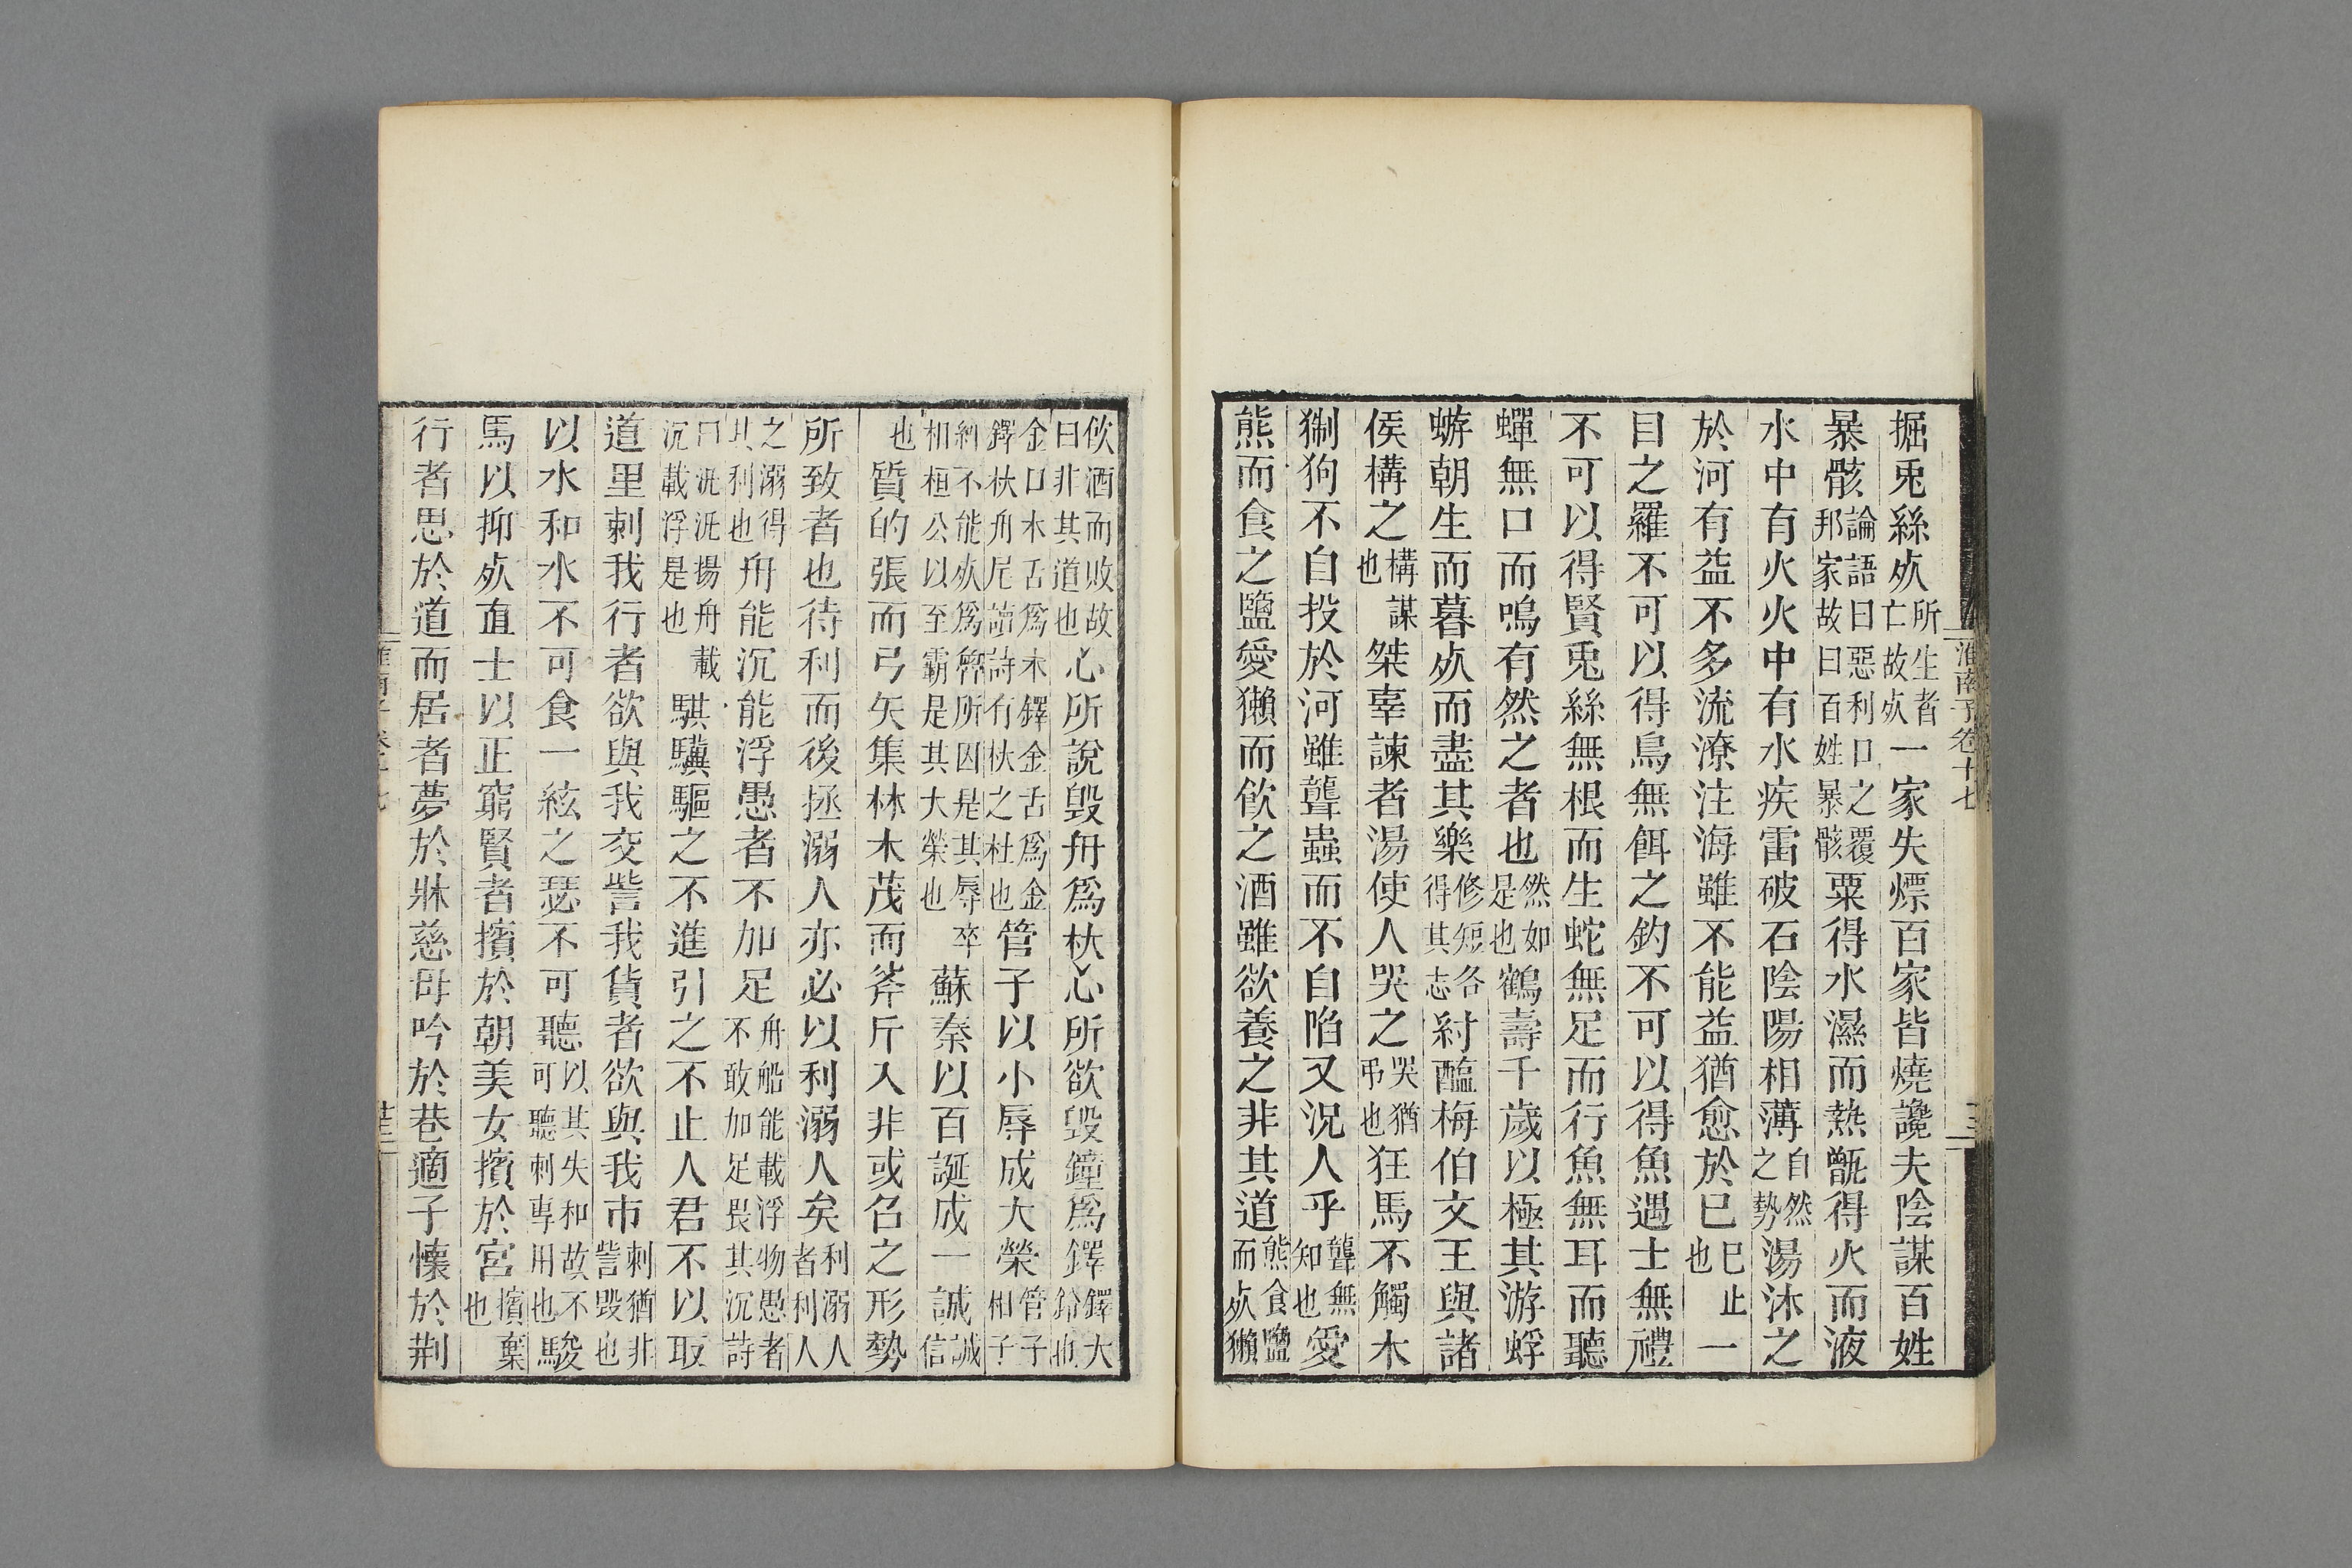 淮南子卷十七
掘兎絲死所生者亡故死一家失熛百家皆燒讒夫陰謀百姓
暴骸論語曰惡利口之覆邦家故曰百姓暴骸粟得水濕而熱甑得火而液
水中有火火中有水疾雷破石陰陽相薄自然之勢湯沐之
於河有益不多流潦注海雖不能益猶愈於已已止也一
目之羅不可以得鳥無餌之釣不可以得魚遇士無禮
不可以得賢兎絲無根而生蛇無足而行魚無耳而聽
蟬無口而鳴有然之者也然如是也鶴壽千歲以極其游蜉
蝣朝生而暮死而盡其樂修短各得其志紂醢梅伯文王與諸
侯構之構謀也桀辜諫者湯使人哭之哭猶弔也狂馬不觸木
猘狗不自投於河雖聾蟲而不自陷又況人乎聾無知也愛
熊而食之鹽愛獺而飲之酒雖欲養之非其道熊食鹽而死獺
飲酒而敗故曰非其道也心所說毀舟爲杕心所欲毀鐘爲鐸鐸大鈴也
金口木舌爲木鐸金舌爲金鐸杕舟尾讀詩有杕之杜也管子以小辱成大榮管子相子
糾不能死爲魯所囚是其辱卒相桓公以至霸是其大榮也蘇秦以百誕成一誠誠信
也質的張而弓矢集林木茂而斧斤入非或召之形勢
所致者也待利而後拯溺人亦必以利溺人矣利溺人者利人
之溺得其利也舟能沉能浮愚者不加足舟船能載浮物愚者不敢加足畏其沉詩
曰汎汎揚舟載沉載浮是也騏驥驅之不進引之不止人君不以取
道里刺我行者欲與我交訾我貨者欲與我市刺猶非訾毀也
以水和水不可食一絃之瑟不可聽以其失和故不可聽刺專用也駿
馬以抑死直士以正窮賢者擯於朝美女擯於宮擯棄也
行者思於道而居者夢於牀慈母吟於巷適子懷於荆